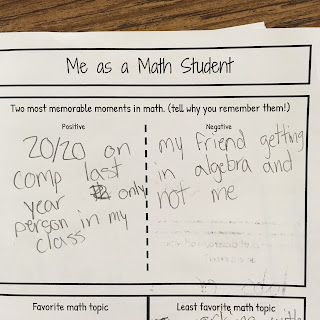 Me as a Math Student
Two most memorable moments in math. (tell why you remember them!)
Positive
20/20 on
comp last
year only
person in my
class
Negative
my friend getting
in algebra and
not me
Favorite math topic
Least favorite math topic
working with